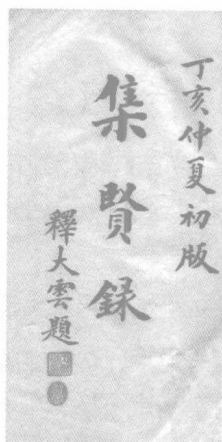 丁亥仲夏初版
集賢録
釋大雲題